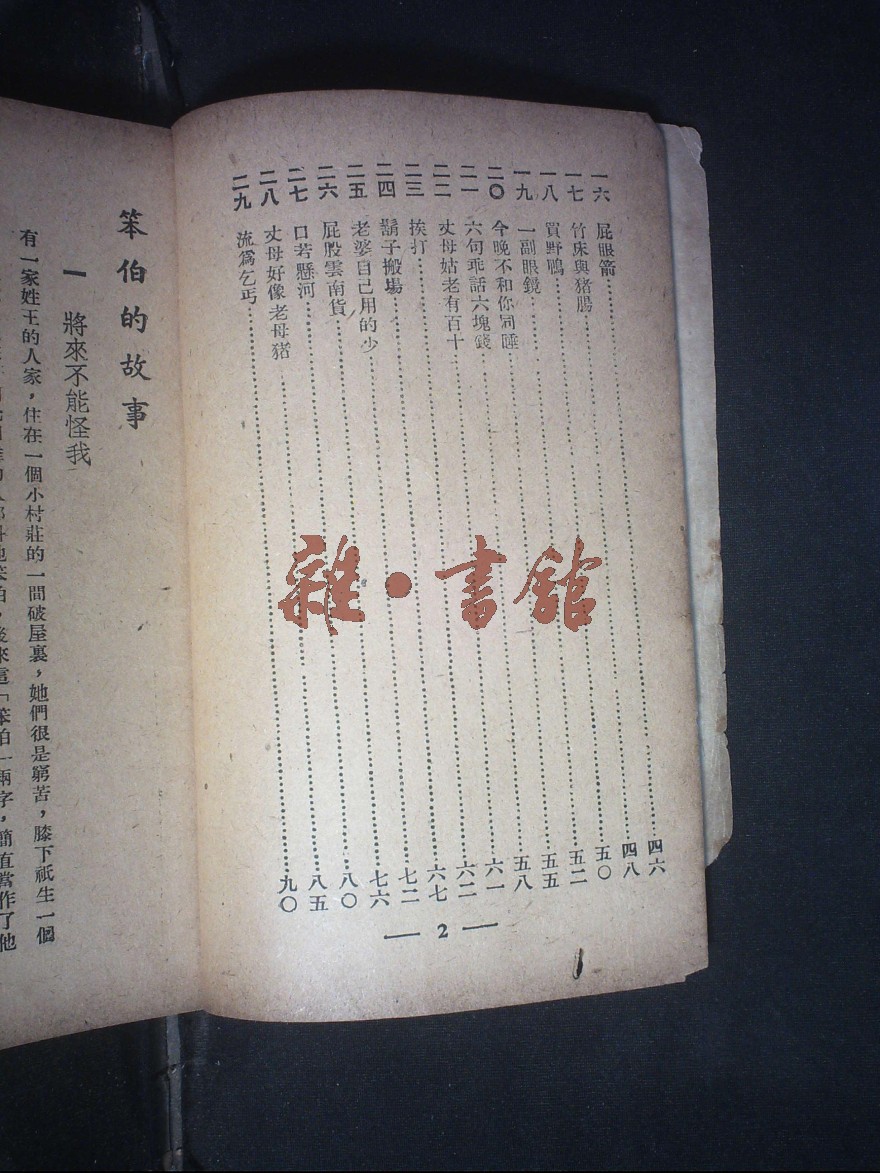 一六 屁眼箭……四六
一七 竹床與猪腸……四八
一八 買野鴨……五〇
一九 一副眼鏡……五二
二〇 今晚不和你同睡……五五
二一 六句乖話六塊錢……五八
二二 丈母姑老有百十……六一
二三 挨打……六二
二四 鬍子搬場……六七
二五 老婆自己用的少……七二
二六 屁股雲南貨……七六
二七 口若懸河……八〇
二八 丈母好像老母猪……八五
二九 流爲乞丐……九〇
— 2 —
笨伯的故事
一 將來不能怪我
有一家姓王的人家，住在一個小村莊的一間破屋裏，她們很是窮苦，膝下祇生一個
後來這「笨伯」兩字，簡直當作了他
雜·書館